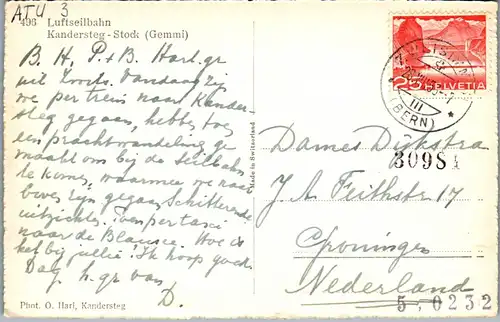 ATU 3
496 Luftseilbahn
Kandersteg-Stock (Gemmi)
B. H. P. + B. Hart. gr
uit Zwits. Vandaag zijn
we per trein naar Kander-
steg gegaan, hebben toen
een prachtwandeling ge
maakt om bij de Seilbahn
te komen, waarmee we naar
boven zijn gegaan. Schitterende
uitzichten. Toen per taxi
naar de Blausee. Hoe is
het bij jullie. Ik hoop goed.
Dag h. gr van
D.
Phot. O. Hari, Kandersteg
Made in Switzerland
25 HELVETIA
(BERN)
III
Dames Dijkstra
30984
J A Feithstr 17
Groningen
Nederland
5,0232